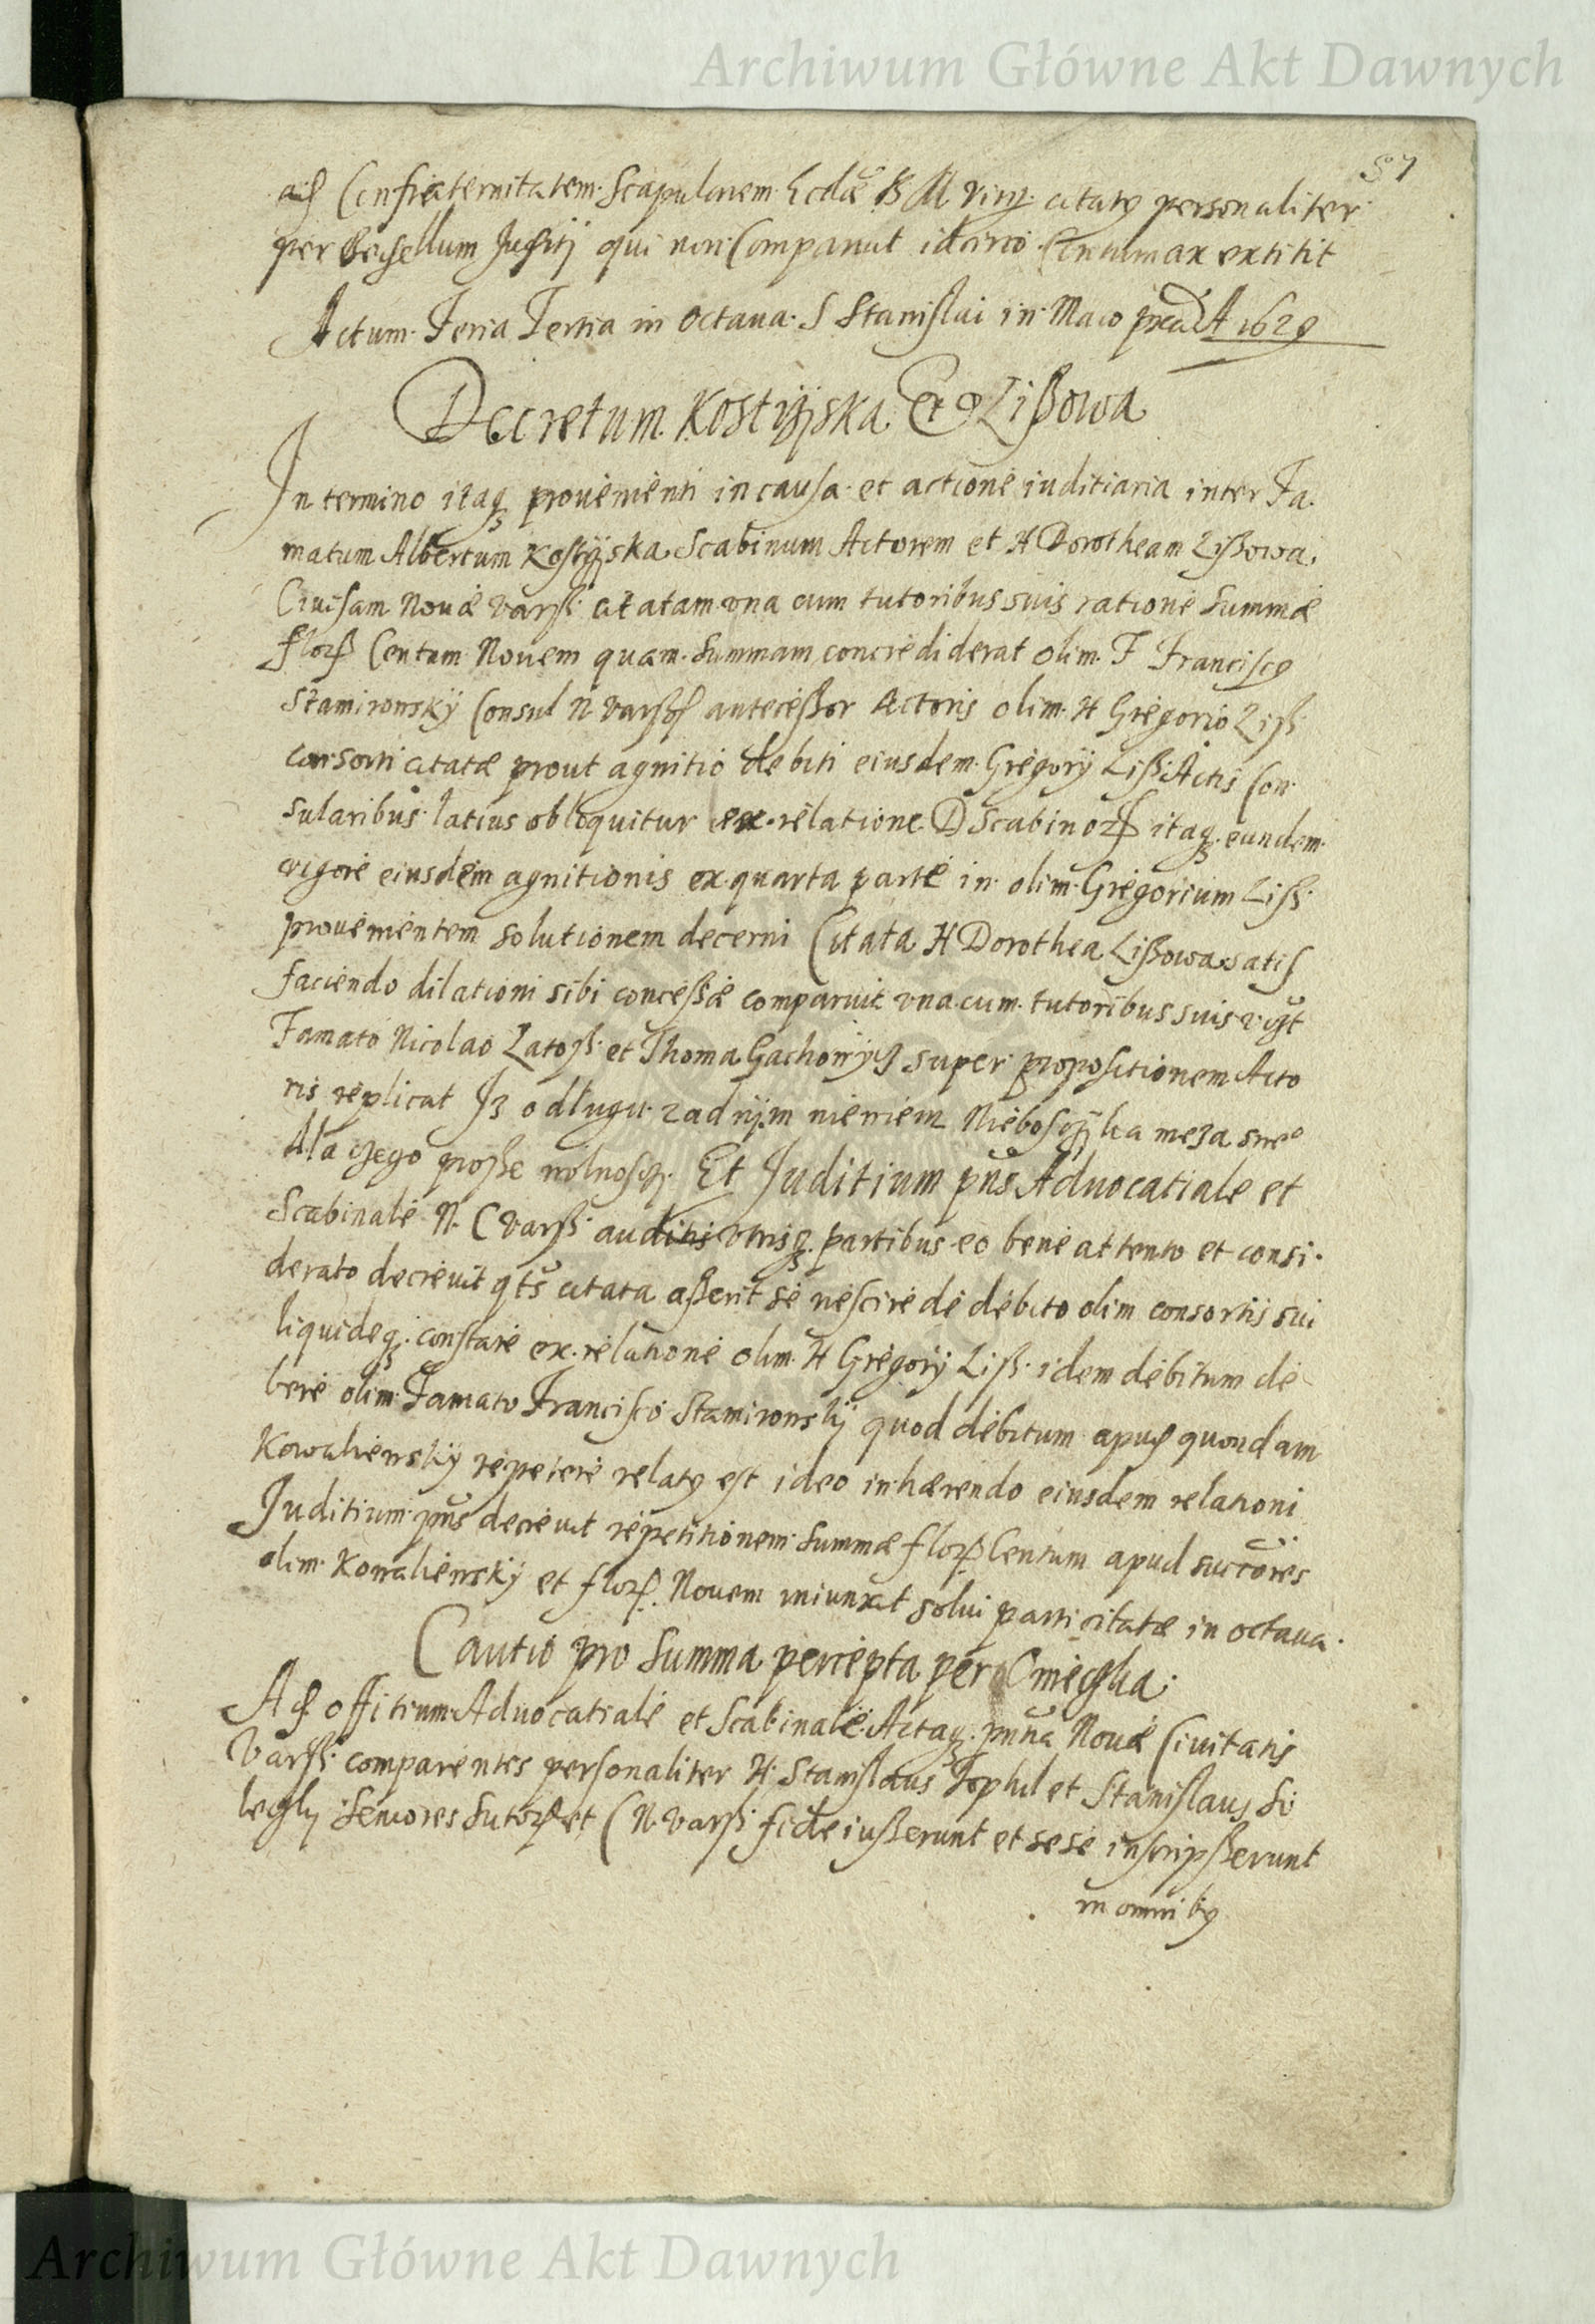 Archiwum Główne Akt Dawnych
87
ad Confraternitatem Scapularem Ecclæ B M Virg. citatus personaliter
per Bedellum Juditij qui non Comparuit idcirco Contumax extitit
Actum Feria Tertia in Octaua S Stanislai in Maio A 1629
Decretum Kostÿṛska Et Lißowa
In termino itaq prouenienti in causa et actione iuditiaria inter Fa
matum Albertum Kostÿrska Scabinum Actorem et H Dorotheam Lißowa
Ciuisam Nouæ Varß: citatam vna cum tutoribus suis ratione Summæ
flor Centum Nouem quam Summam concrediderat olim F Francisco
Stamirowskÿ Consul N Varß antecessor Actoris olim H Gregorio Liß
consorti citatæ prout agnitio debiti eiusdem Gregorÿ Liß Actis Con
sularibus latius obloquitur ex relatione D Scabinor itaq eundem
vigore eiusdem agnitionis ex quarta parte in olim Gregorium Liß
prouenientem solutionem decerni Citata H Dorothea Lißowa satis
faciendo dilationi sibi concessæ comparuit vna cum tutoribus suis vigt
Famato Nicolao Latoß et Thoma super propositionem Acto
ris replicat Iz o długu zadnÿm niewiem Nieboscÿka meza sweo
Dla czego prosze wolnoscÿ. Et Juditium pns Aduocatiale et
Scabinale N. C Varß: auditis vtrisq partibus eo bene attento et consi
derato decreuit qts citata asserit se nescire de debito olim consortis sui
liquideq constare ex relatione olim H Gregorÿ Liß idem debitum de
bere olim Famato Francisco Stamirowskÿ quod debitum apud quondam
Kowalienskÿ repetere relatus est ideo inhærendo eiusdem relationi
Juditium pns decreuit repetitionem Summæ flor Centum apud succores
olim Kowalienskÿ et flor Nouem iniunxit solui parti citatæ in octaua
Cautio pro Summa percepta per
Ad offitium Aduocatiale et Scabinale Actaq pnna Nouæ Ciuitatis
Varß: comparentes personaliter H: Stanislaus et Stanislaus
Seniores Sutor et C N Varß fideiusserunt et sese inscripserunt
in omnibus
Archiwum Główne Akt Dawnych